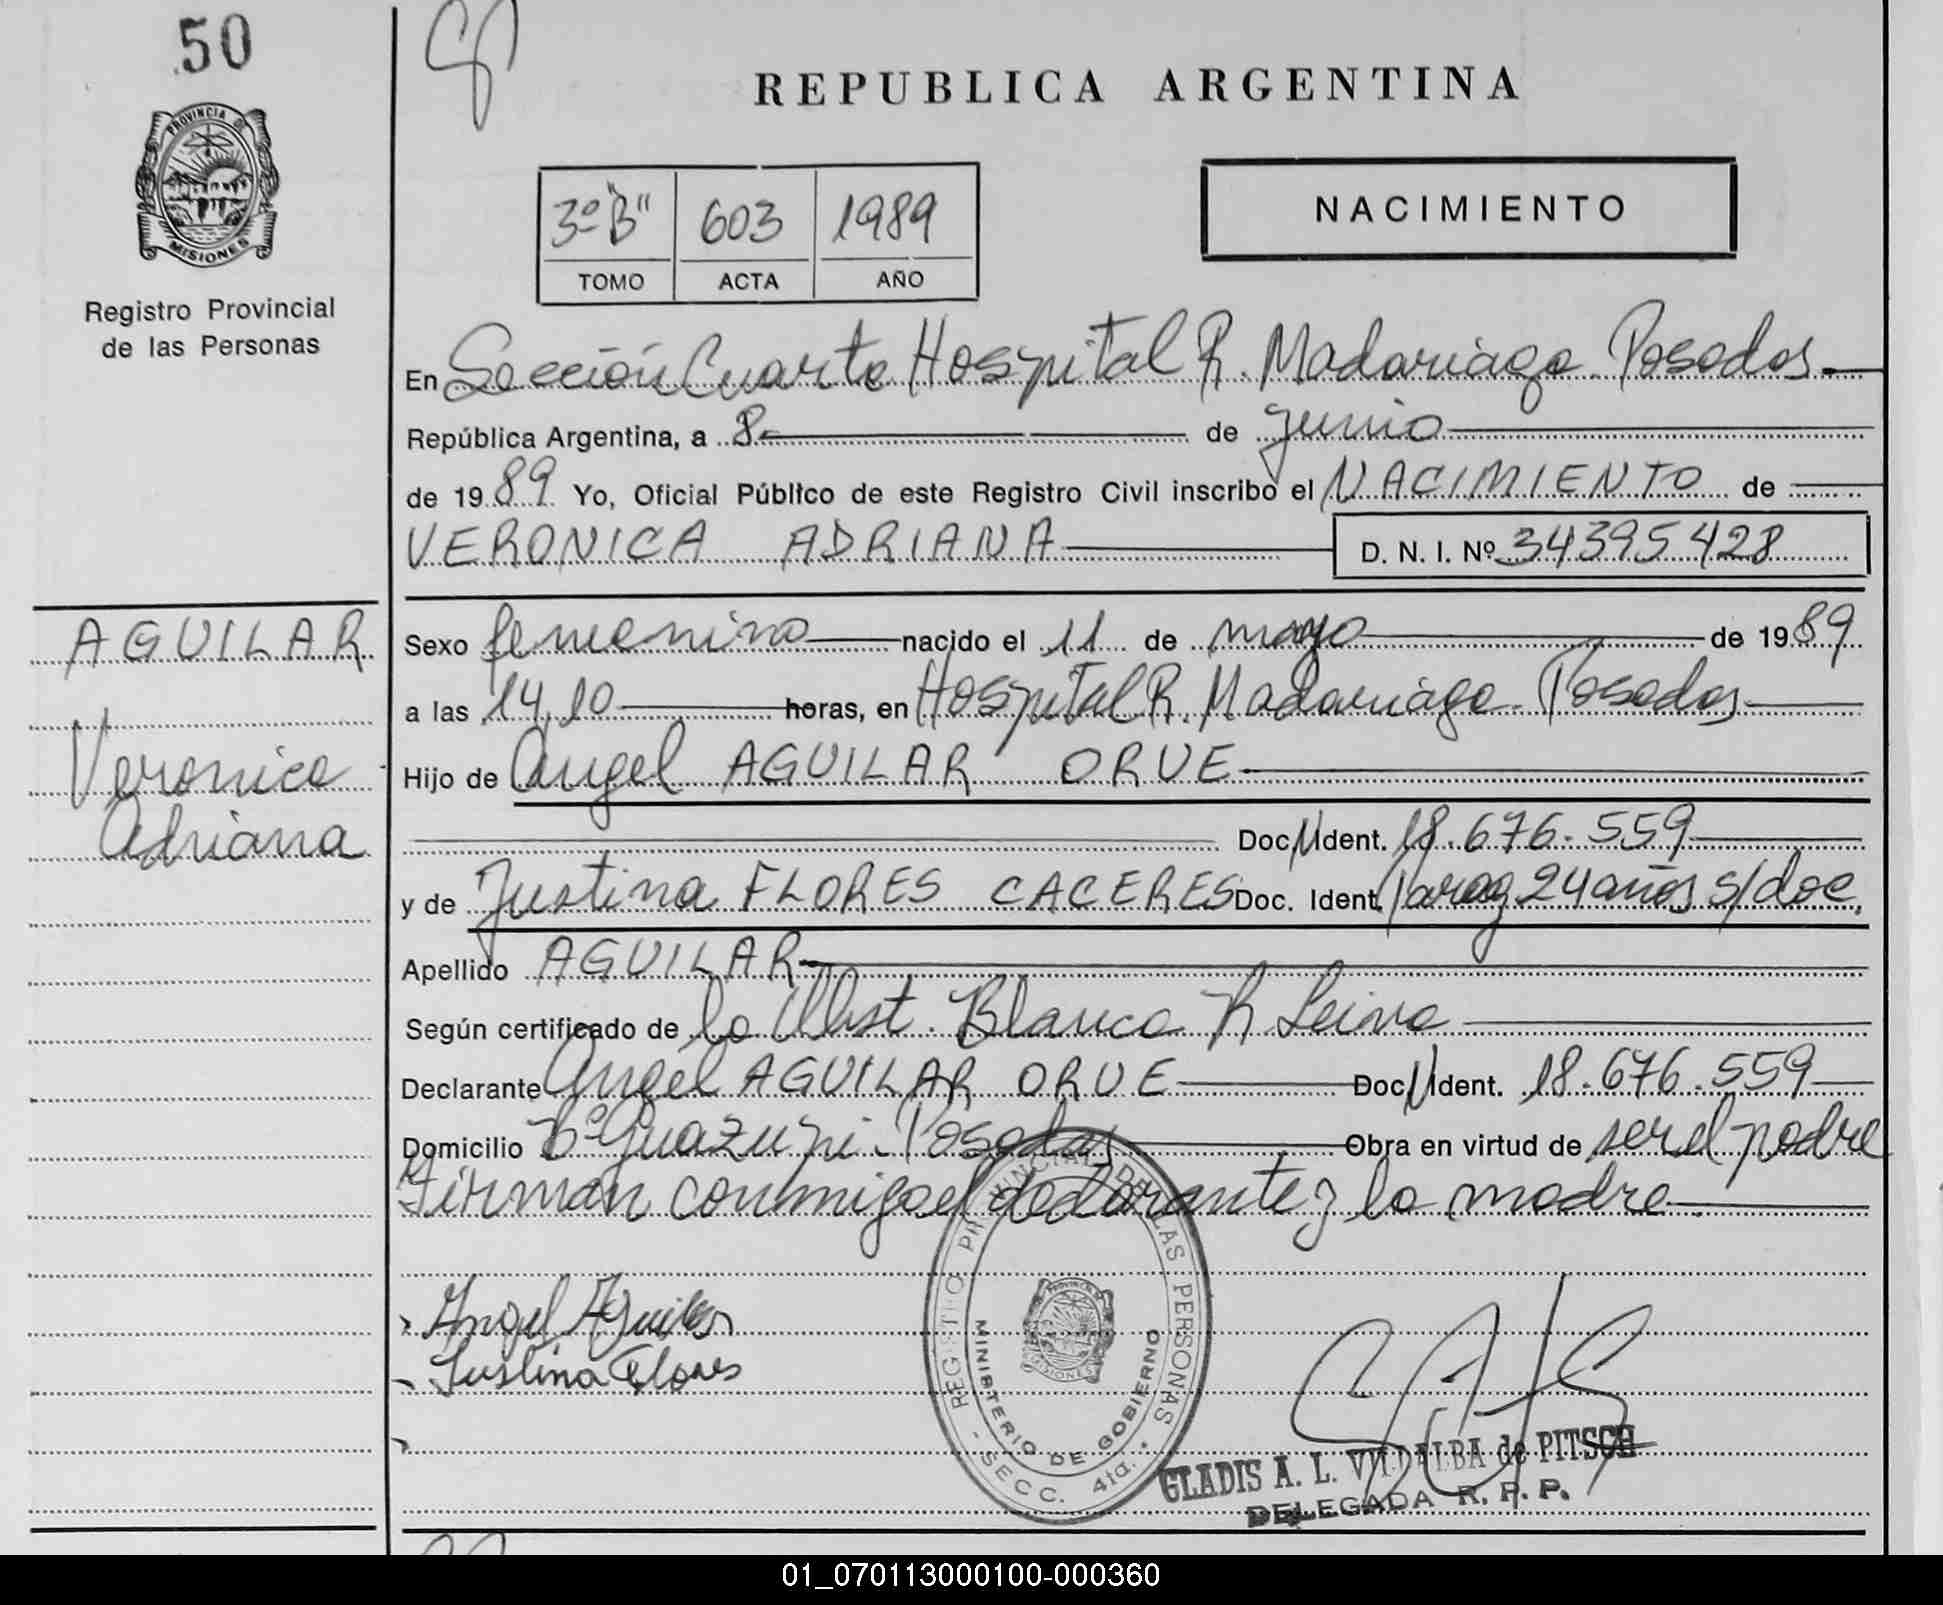 50
REPUBLICA ARGENTINA
PROVINCIA DE
MISIONES
Registro Provincial
de las Personas
3º "B" 603 1989
TOMO ACTA AÑO
NACIMIENTO
En Sección Cuarta Hospital R. Madariaga. Posadas
República Argentina, a 8 de junio
de 1989 Yo, Oficial Público de este Registro Civil inscribo el NACIMIENTO de
VERONICA ADRIANA D. N. I. Nº 34395428
AGUILAR
Veronica
Adriana
Sexo femenino nacido el 11 de mayo de 1989
a las 14,10 horas, en Hospital R. Madariaga. Posadas
Hijo de Angel AGUILAR ORUE
Doc. N Ident. 18.676.559
y de Justina FLORES CACERES Doc. Ident. Parag 24 años s/doc.
Apellido AGUILAR
Según certificado de la Obst. Blanca R Leiva
Declarante Angel AGUILAR ORUE Doc. N Ident. 18.676.559
Domicilio Bº Guazupi. Posadas Obra en virtud de ser el padre
Firman conmigo el declarante y la madre
Angel Aguilar
Justina Flores
REGISTRO PROVINCIAL DE LAS PERSONAS
MINISTERIO DE GOBIERNO
- SECC. 4ta. -
PROVINCIA DE
MISIONES
GLADIS A. L. VILLALBA de PITSCH
DELEGADA R. P. P.
01_070113000100-000360